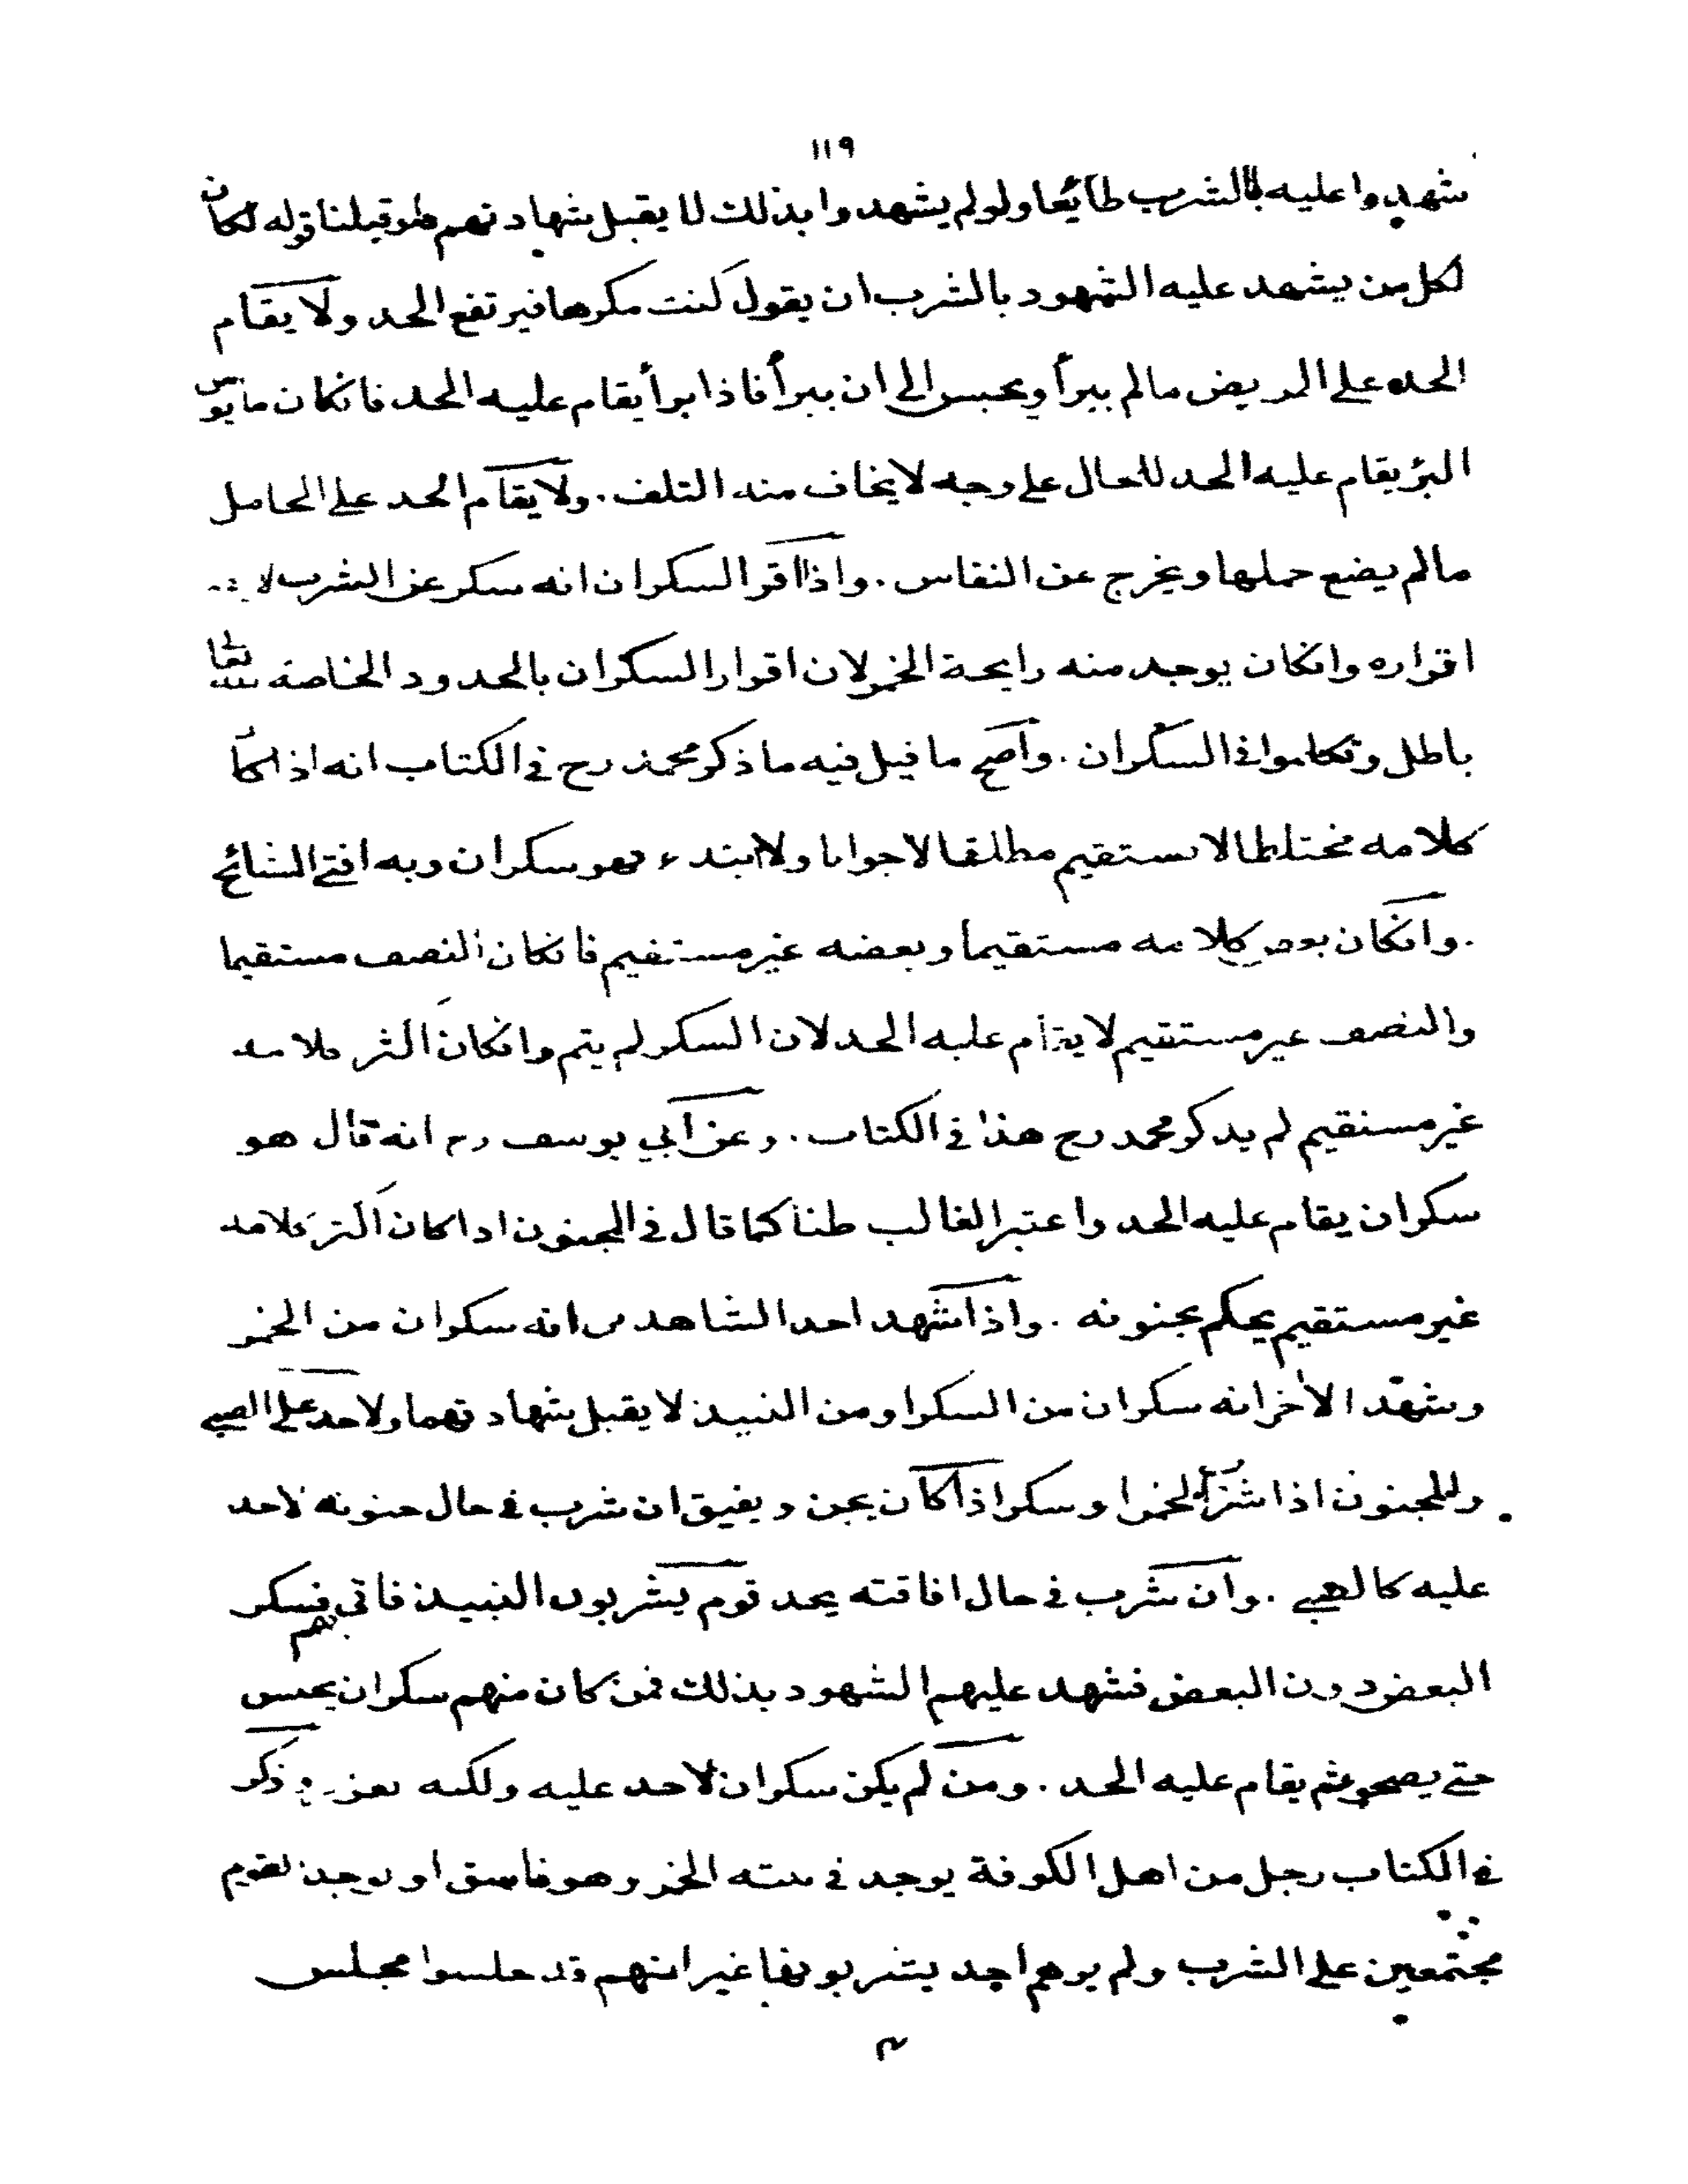 ١١٩
شهدوا عليه بالشرب طائعا ولو لم يشهدوا بذلك لا يقبل شهادتهم فلو قبلنا قوله لكان
لكل من يشهد عليه الشهود بالشرب ان يقول كنت مكرها فيرتفع الحد ولا يقام
الحد على المريض مالم يبرأ ويحبس الى ان يبرأ فاذا برأ يقام عليه الحد فانكان مايوس
البرؤ يقام عليه الحد للحال على وجه لا يخاف منه التلف . ولا يقام الحد على الحامل
مالم يضع حملها ويخرج عن النفاس . واذا اقر السكران انه سكر عن الشرب لا
اقراره وانكان يوجد منه رايحة الخمر لان اقرار السكران بالحدود الخاصة
باطل وتكلموا في السكران . واصح ما قيل فيه ما ذكر محمد رح في الكتاب انه اذا كان
كلامه مختلطا لا يستقيم مطلقا لا جوابا ولا ابتدء فهو سكران وبه افتى المشائخ
. وانكان بعض كلامه مستقيما وبعضه غير مستقيم فانكان النصف مستقيما
والنصف غير مستقيم لا يقام عليه الحد لان السكر لم يتم وانكان اكثر كلامه
غير مستقيم لم يذكر محمد رح هذا في الكتاب . وعن ابي يوسف رح انه قال هو
سكران يقام عليه الحد واعتبر الغالب كما قال في المجنون اذا كان اكثر كلامه
غير مستقيم يحكم بجنونه . واذا شهد احد الشاهدين انه سكران من الخمر
وشهد الاخر انه سكران من السكر او من النبيذ لا يقبل شهادتهما ولا حد على الصبي
والمجنون اذا شربا الخمر او سكرا اذا كان يجن ويفيق ان شرب في حال جنونه لا حد
عليه كالصبي . وان شرب في حال افاقته يحد قوم يشربون النبيذ فاتى بهم فسكر
البعض دون البعض فشهد عليهم الشهود بذلك فمن كان منهم سكران يحبس
حتى يصحو ثم يقام عليه الحد . ومن لم يكن سكران لا حد عليه ولكنه يعزر وذكر
في الكتاب رجل من اهل الكوفة يوجد في بيته الخمر وهو فاسق او يوجد القوم
مجتمعين على الشرب ولم يرهم احد يشربونها غير انهم قد جلسوا مجلس